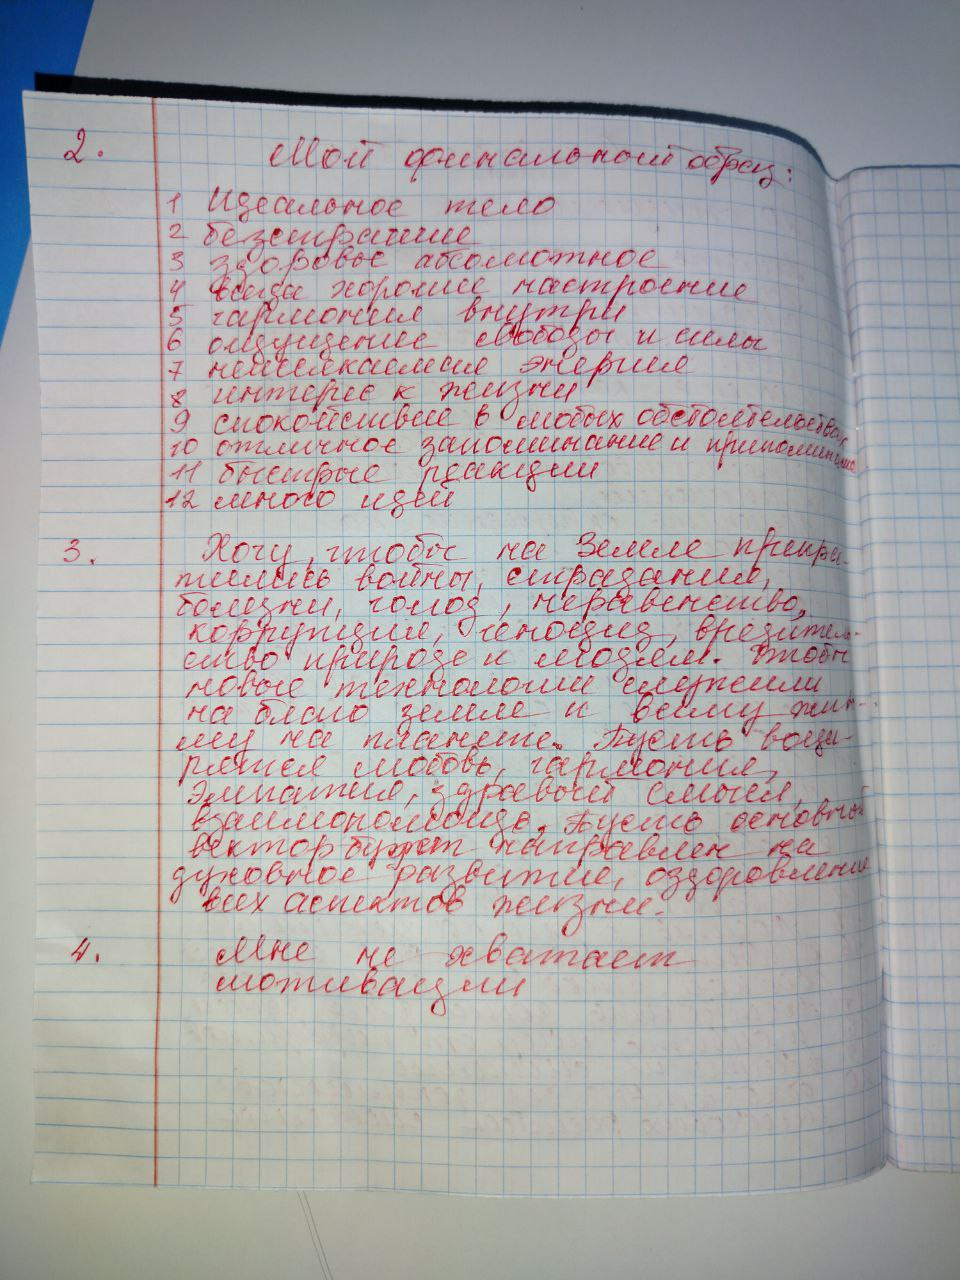 2. Мой финальный образ:
1 Идеальное тело
2 безстрашие
3 здоровье абсолютное
4 всегда хорошее настроение
5 гармония внутри
6 ощущение свободы и силы
7 неиссякаемая энергия
8 интерес к жизни
9 спокойствие в любых обстоятельствах
10 отличное запоминание и припоминание
11 быстрые реакции
12 много идей
3. Хочу, чтобы на Земле прекра-
тились войны, страдания,
болезни, голод, неравенство,
коррупция, геноцид, вредитель-
ство природе и людям. Чтобы
новые технологии служили
на благо земле и всему жи-
му на планете. Пусть воца-
рятся любовь, гармония,
эмпатия, здравый смысл,
взаимопомощь. Пусть основной
вектор будет направлен на
духовное развитие, оздоровление
всех аспектов жизни.
4. Мне не хватает
мотивации